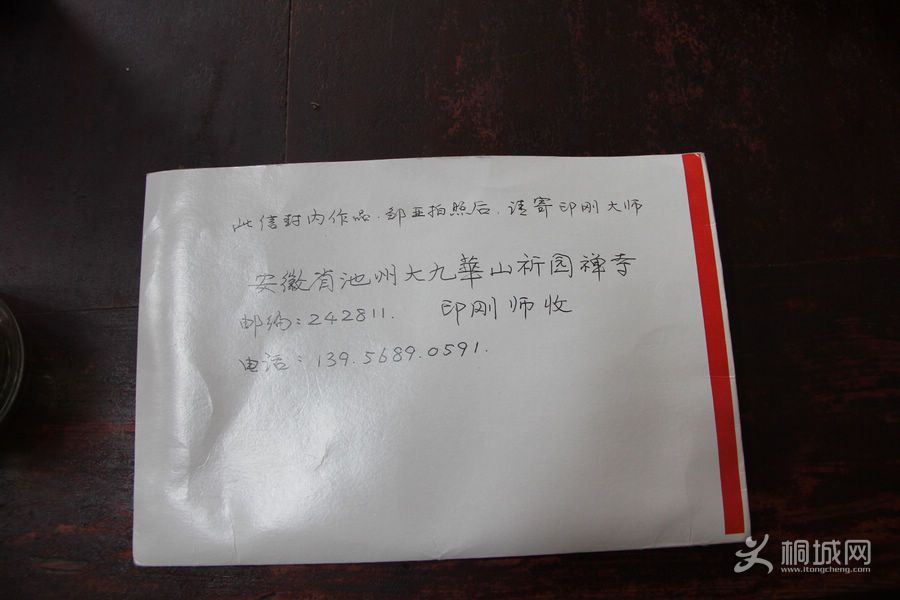 此信封内作品.邹亚拍照后,请寄印刚大师
安徽省池州大九華山祈园禅寺
邮编:242811. 印刚师收
电话:139.5689.0591.
桐城网
www.itongcheng.com